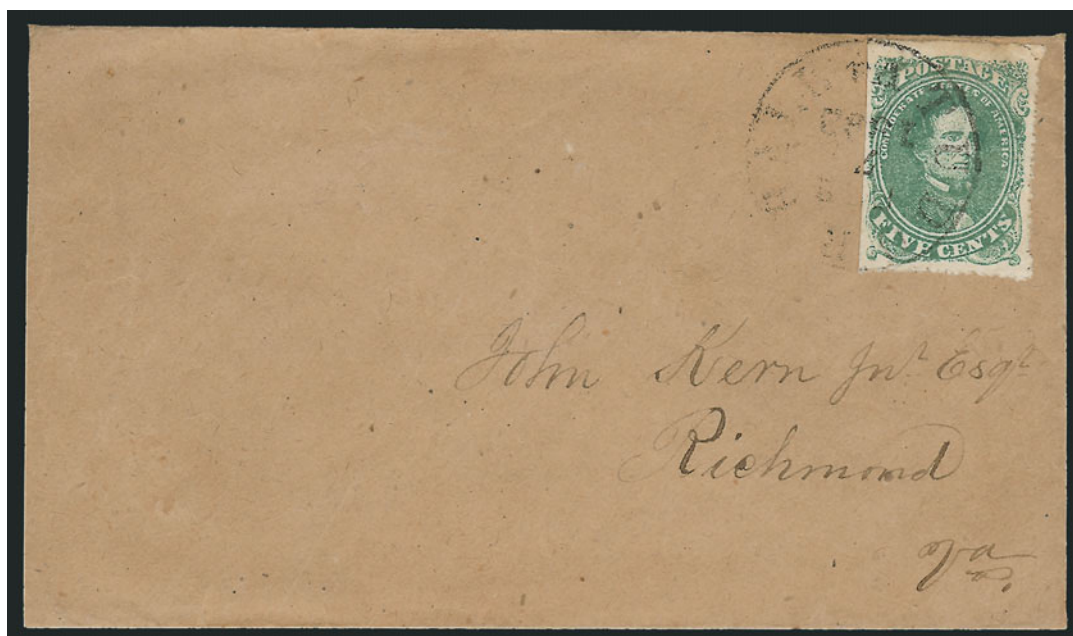 POSTAGE
CONFEDERATE STATES OF AMERICA
FIVE CENTS
John Kern Jnr Esqr
Richmond
Va